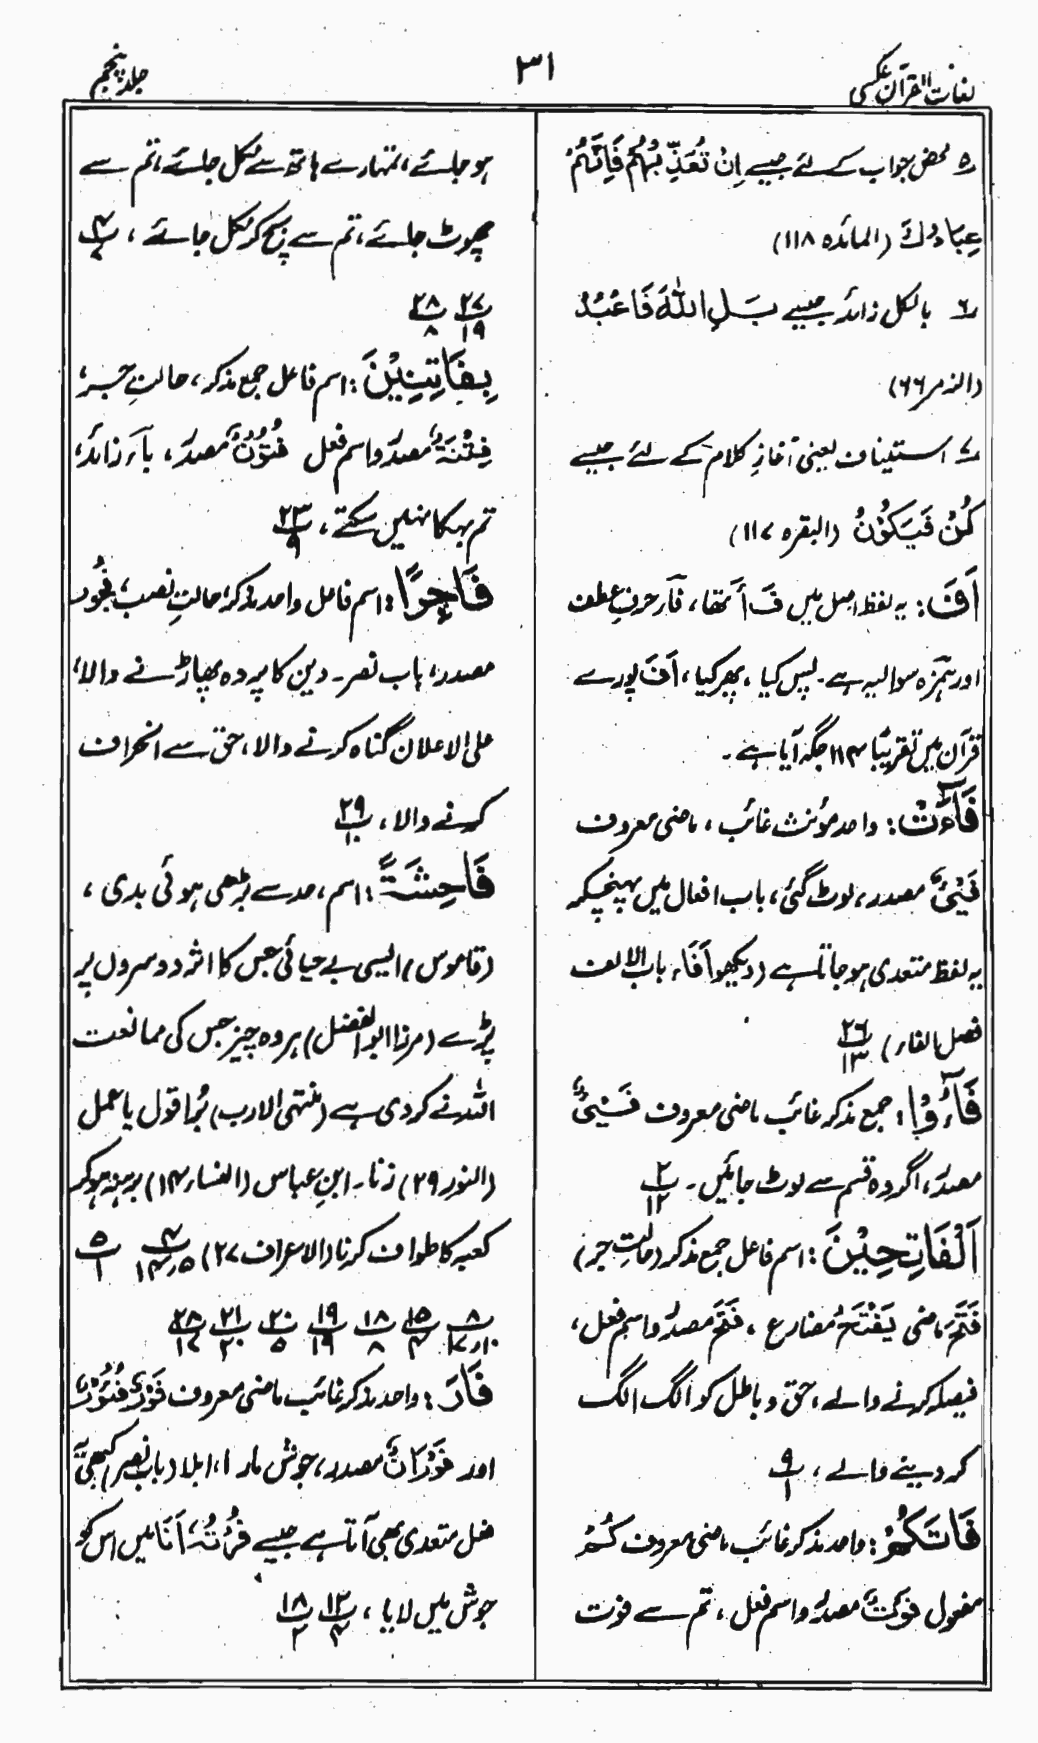 لغات القرآن عکسی
۳۱
جلد پنجم
۵ محض جواب کے لئے جیسے اِنْ تُعَذِّبْہُمْ فَاِنَّہُمْ
عِبَادُكَ (المائدہ ۱۱۸)
۶ بالکل زائد جیسے بَلِ اللّٰہَ فَاعْبُدْ
(الزمر ۶۶)
۷ استیناف یعنی آغازِ کلام کے لئے جیسے
كُنْ فَيَكُوْنُ (البقرہ ۱۱۷)
اَفَ: یہ لفظ اصل میں فَ أَ تھا، فآر حرفِ عطف
اور ہمزہ سوالیہ ہے۔ پس کیا، پھر کیا، اَفَ پورے
قرآن میں تقریبًا ۱۱۴ جگہ آیا ہے۔
فَآءَتْ: واحد مؤنث غائب، ماضی معروف
فَیْئٌ مصدر، لوٹ گئی، باب افعال میں پہنچکر
یہ لفظ متعدی ہو جاتا ہے (دیکھو اَفَاء باب الالف
فصل الفاء) ۲۶/۱۳
فَآءُوْا: جمع مذکر غائب ماضی معروف فَیْئٌ
مصدر، اگر وہ قسم سے لوٹ جائیں۔ ۲/۱۲
اَلْفَاتِحِیْنَ: اسم فاعل جمع مذکر (حالتِ جر)
فَتَحَ ماضی یَفْتَحُ مضارع، فَتْحٌ مصدر واسم فعل،
فیصلہ کرنے والے، حق و باطل کو الگ الگ
کر دینے والے، ۹/۱
فَاتَكُمْ: واحد مذکر غائب ماضی معروف كُمْ
مفعول فَوْتٌ مصدر واسم فعل، تم سے فوت
ہو جائے، تمہارے ہاتھ سے نکل جائے، تم سے
چھوٹ جائے، تم سے بچ کر نکل جائے، ۴/۷
۲۷/۱۹ ۲۸/۸
بِفَاتِنِیْنَ: اسم فاعل جمع مذکر، حالتِ جر،
فِتْنَۃٌ مصدر واسم فعل فُتُوْنٌ مصدر، بآء زائد،
تم بہکا نہیں سکتے، ۲۳/۹
فَاجِرًا: اسم فاعل واحد مذکر، حالتِ نصب، فُجُور
مصدر، باب نصر۔ دین کا پردہ پھاڑنے والا،
علی الاعلان گناہ کرنے والا، حق سے انحراف
کرنے والا، ۲۹/۱۰
فَاحِشَۃً: اسم، حد سے بڑھی ہوئی بدی،
(قاموس) ایسی بے حیائی جس کا اثر دوسروں پر
پڑے (مرزا ابوالفضل) ہر وہ چیز جس کی ممانعت
اللہ نے کر دی ہے (منتہی الارب) بُرا قول یا عمل
(النور ۲۹) زنا۔ ابنِ عباس (النساء ۱۴) برہنہ ہو کر
کعبہ کا طواف کرنا (الاعراف ۲۷) ۴/۱۴،۵ ۵/۱
۸/۱۰،۱۷ ۱۵/۴ ۱۸/۸ ۱۹/۱۹ ۲۰/۵ ۲۱/۲۰ ۲۸/۱۷
فَارَ: واحد مذکر غائب ماضی معروف فَوْرٌ، فُئُوْرٌ
اور فَوْرَانٌ مصدر، جوش مارا، ابلا (باب نصر) کبھی یہ
فعل متعدی بھی آتا ہے جیسے فُرْتُہٗ اَنَا میں اس کو
جوش میں لایا، ۱۲/۴ ۱۸/۲